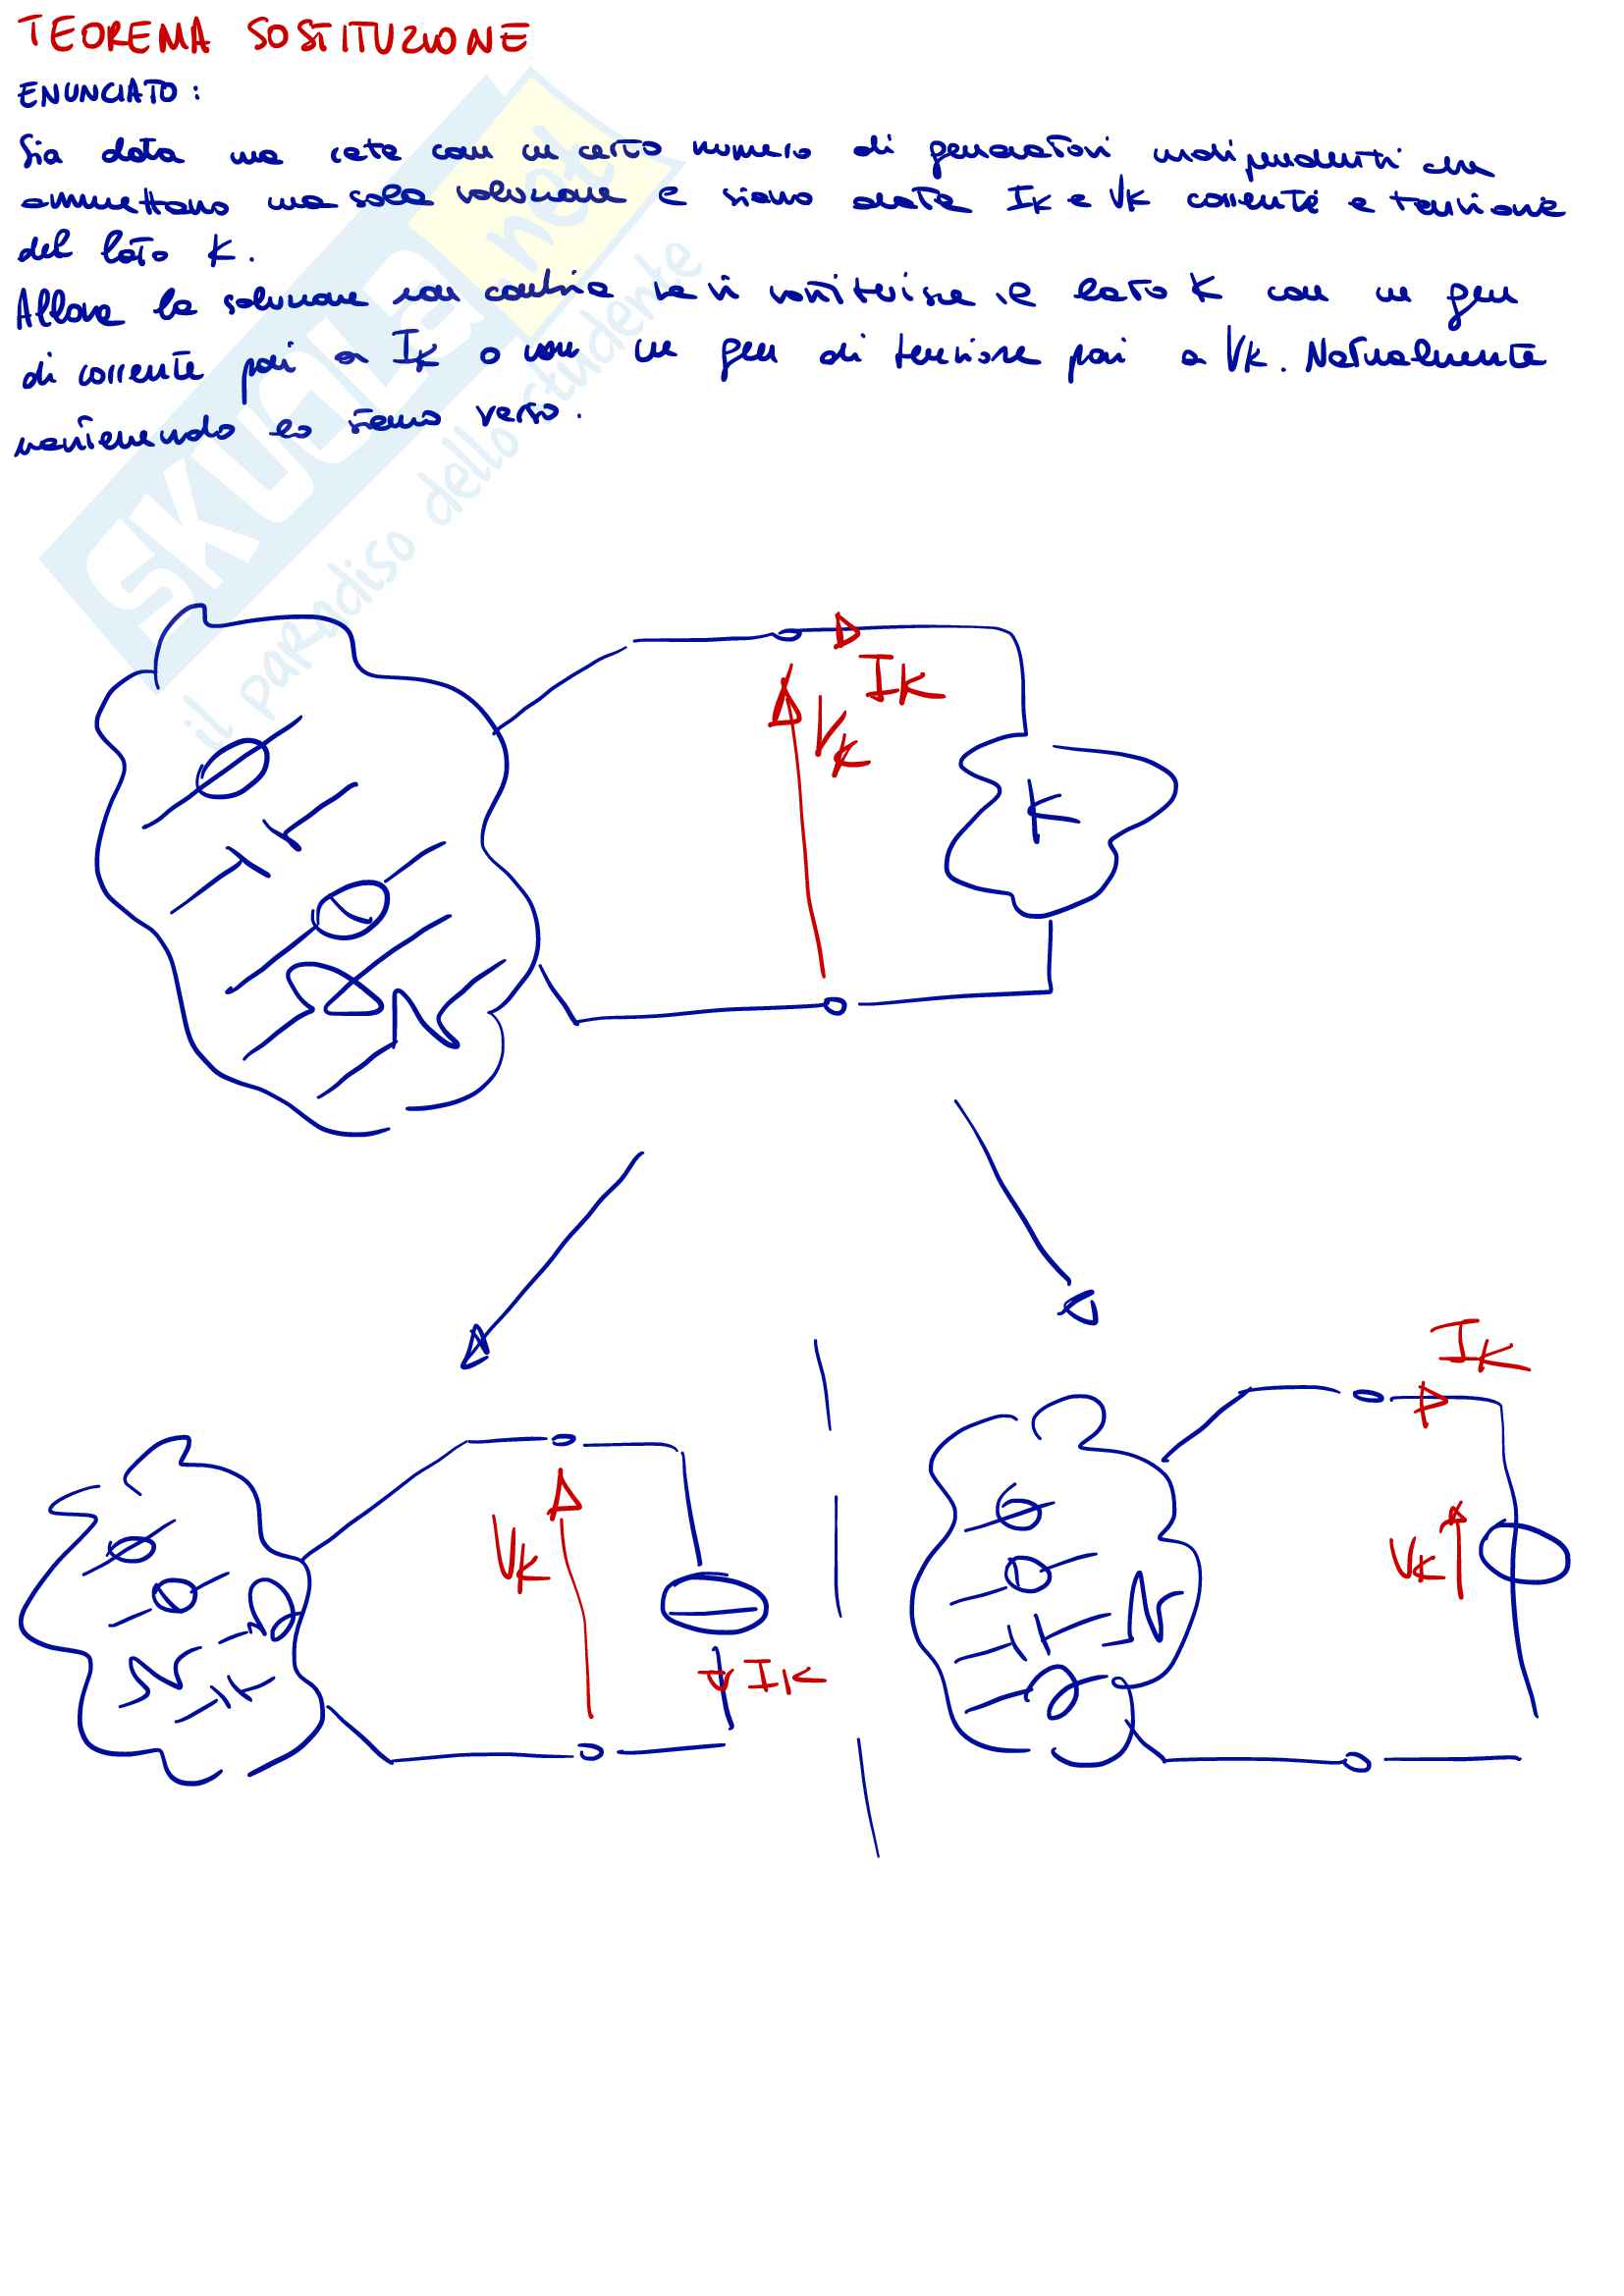 TEOREMA SOSTITUZIONE
ENUNCIATO:
Sia data una rete con un certo numero di generatori indipendenti che
ammettano una sola soluzione e siano date IK e VK corrente e tensione
del lato K.
Allora la soluzione non cambia se si sostituisce il lato K con un gen
di corrente pari a IK o con un gen di tensione pari a VK. Naturalmente
mantenendo lo stesso verso.
SKUOLA.net
il paradiso dello studente
IK
VK
K
IK
VK
IK
VK